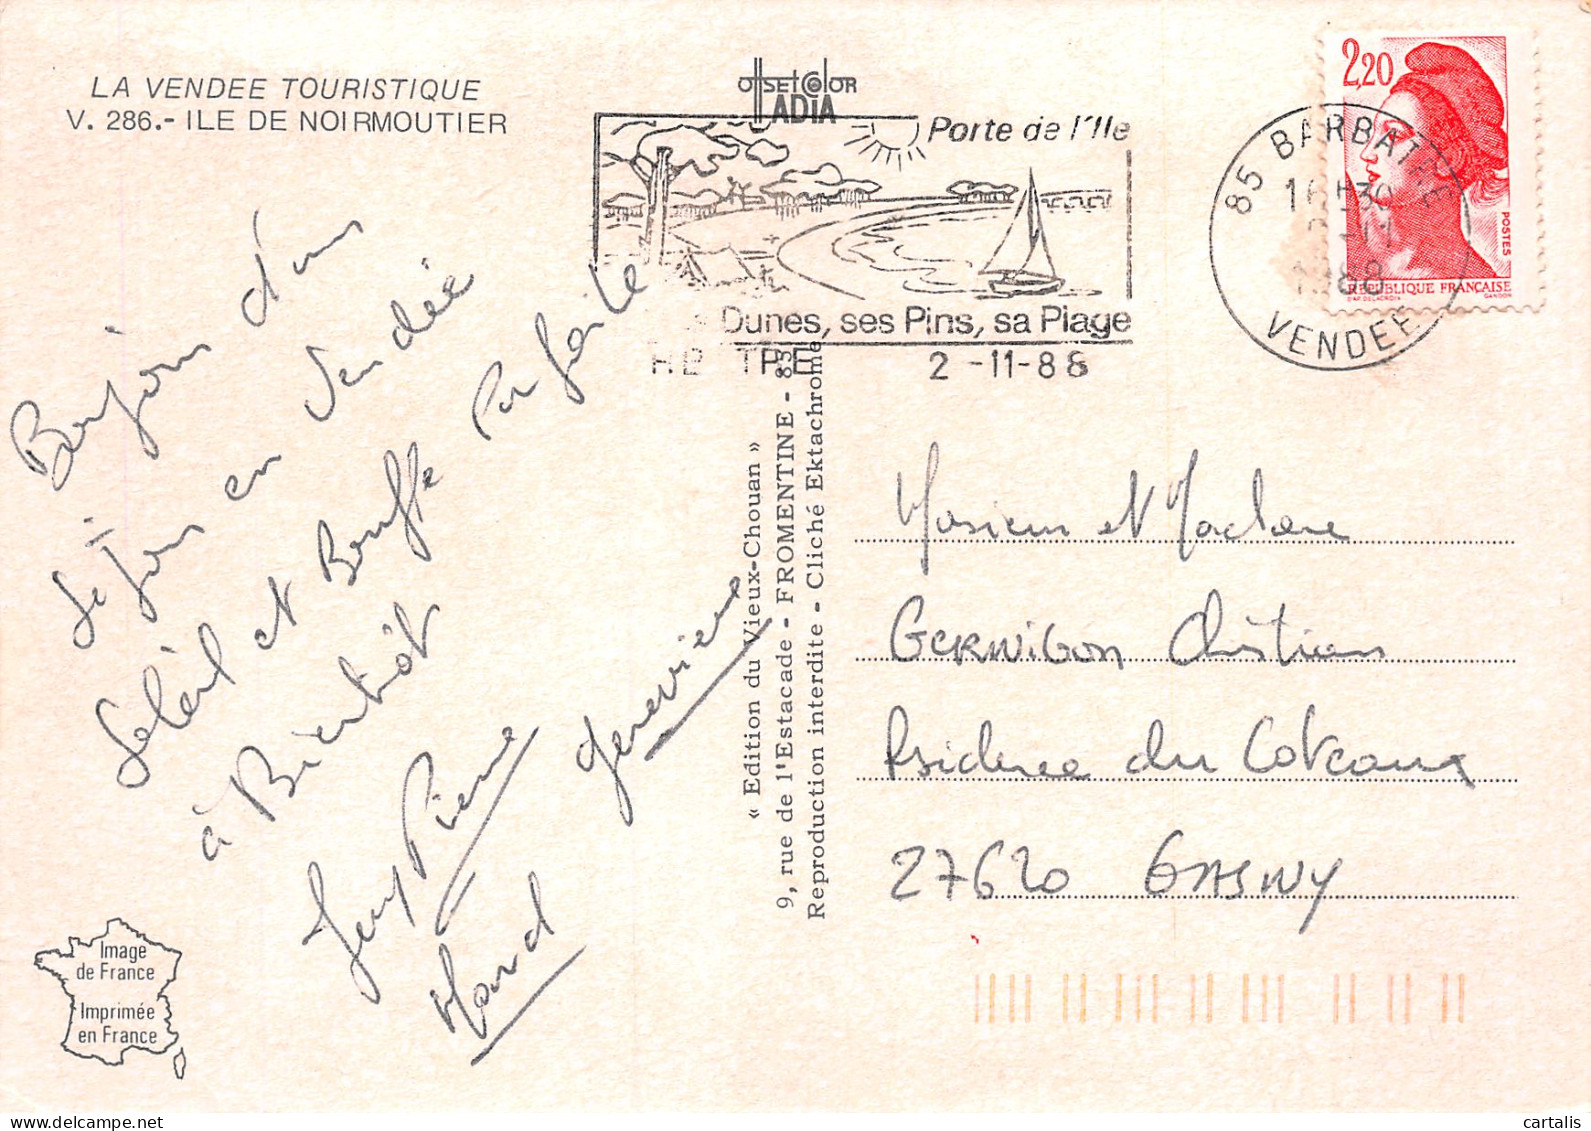 LA VENDEE TOURISTIQUE
V. 286.- ILE DE NOIRMOUTIER
OffsetColor
ADIA
Porte de l'Ile
Dunes, ses Pins, sa Plage
2 -11-88
85 BARBATRE
16H30
1988
VENDEE
2,20
POSTES
REPUBLIQUE FRANÇAISE
D'AP. DELACROIX
GANDON
Bonjour d'un
séjour en Vendée
Soleil et Bouffe Parfaite
à Bientôt
Jean Pierre
Geneviève
« Edition du Vieux-Chouan »
9, rue de l'Estacade - FROMENTINE - 85
Reproduction interdite - Cliché Ektachrome
Monsieur et Madame
GERNIGON Christian
Résidence du Coteaux
27620 GASNY
Image
de France
Imprimée
en France
cartalis